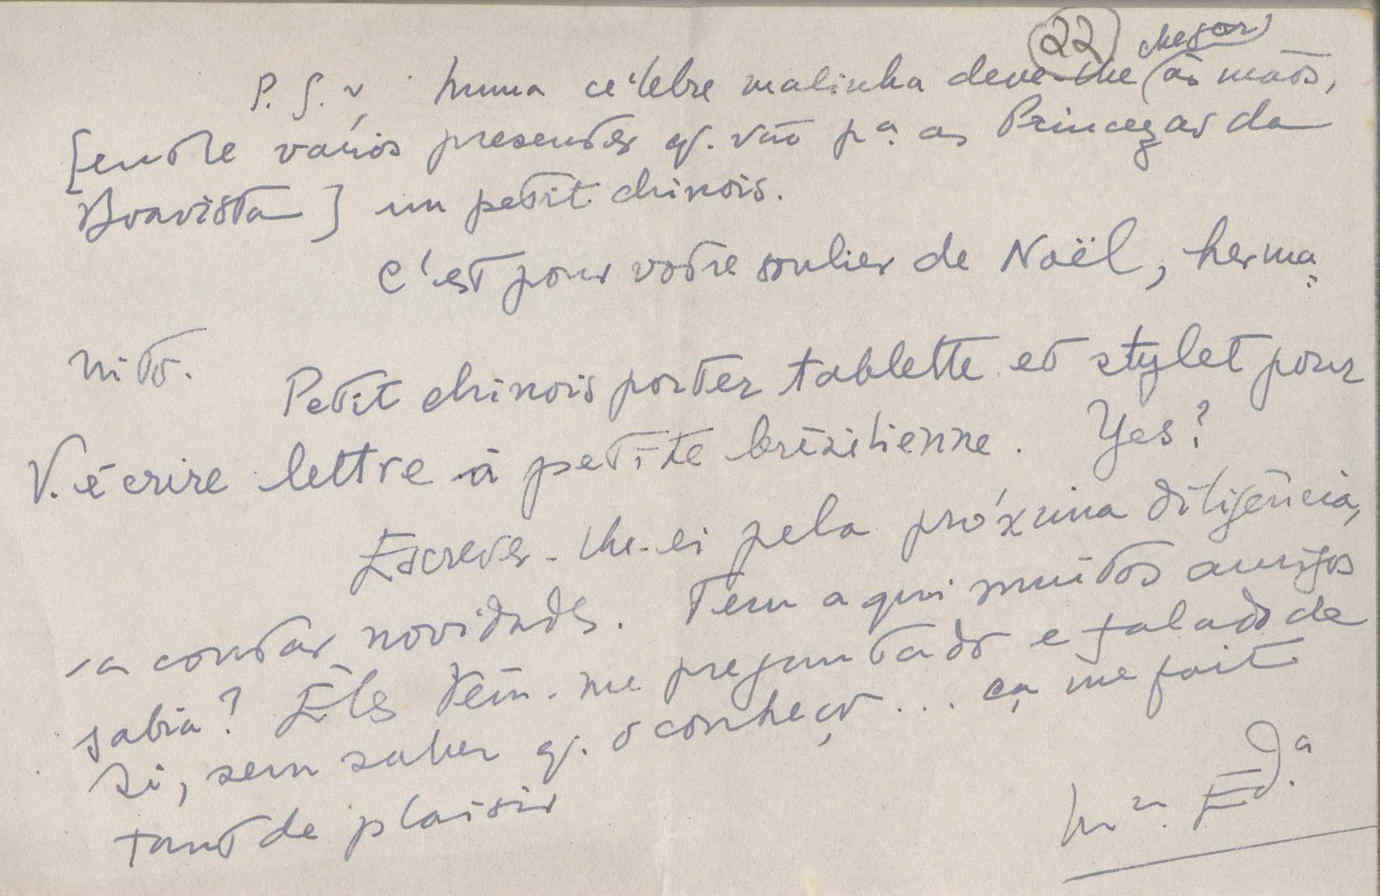 22 chegar
P. S. numa célebre malinha deve-lhe às mãos,
[entre vários presentes q. vão pª. as Princezas da
Boavista] un petit chinois.
C'est pour votre soulier de Noël, herma=
nito.
Petit chinois porter tablette et stylet pour
V. écrire lettre à petite brézilienne. Yes?
Escrever-lhe-ei pela próxima diligência,
a contar novidades. Tem aqui muitos amigos
sabia? Êles têm-me preguntado e falado de
si, sem saber q. o conheço... ça me fait
tant de plaisir
Mª. Edª.